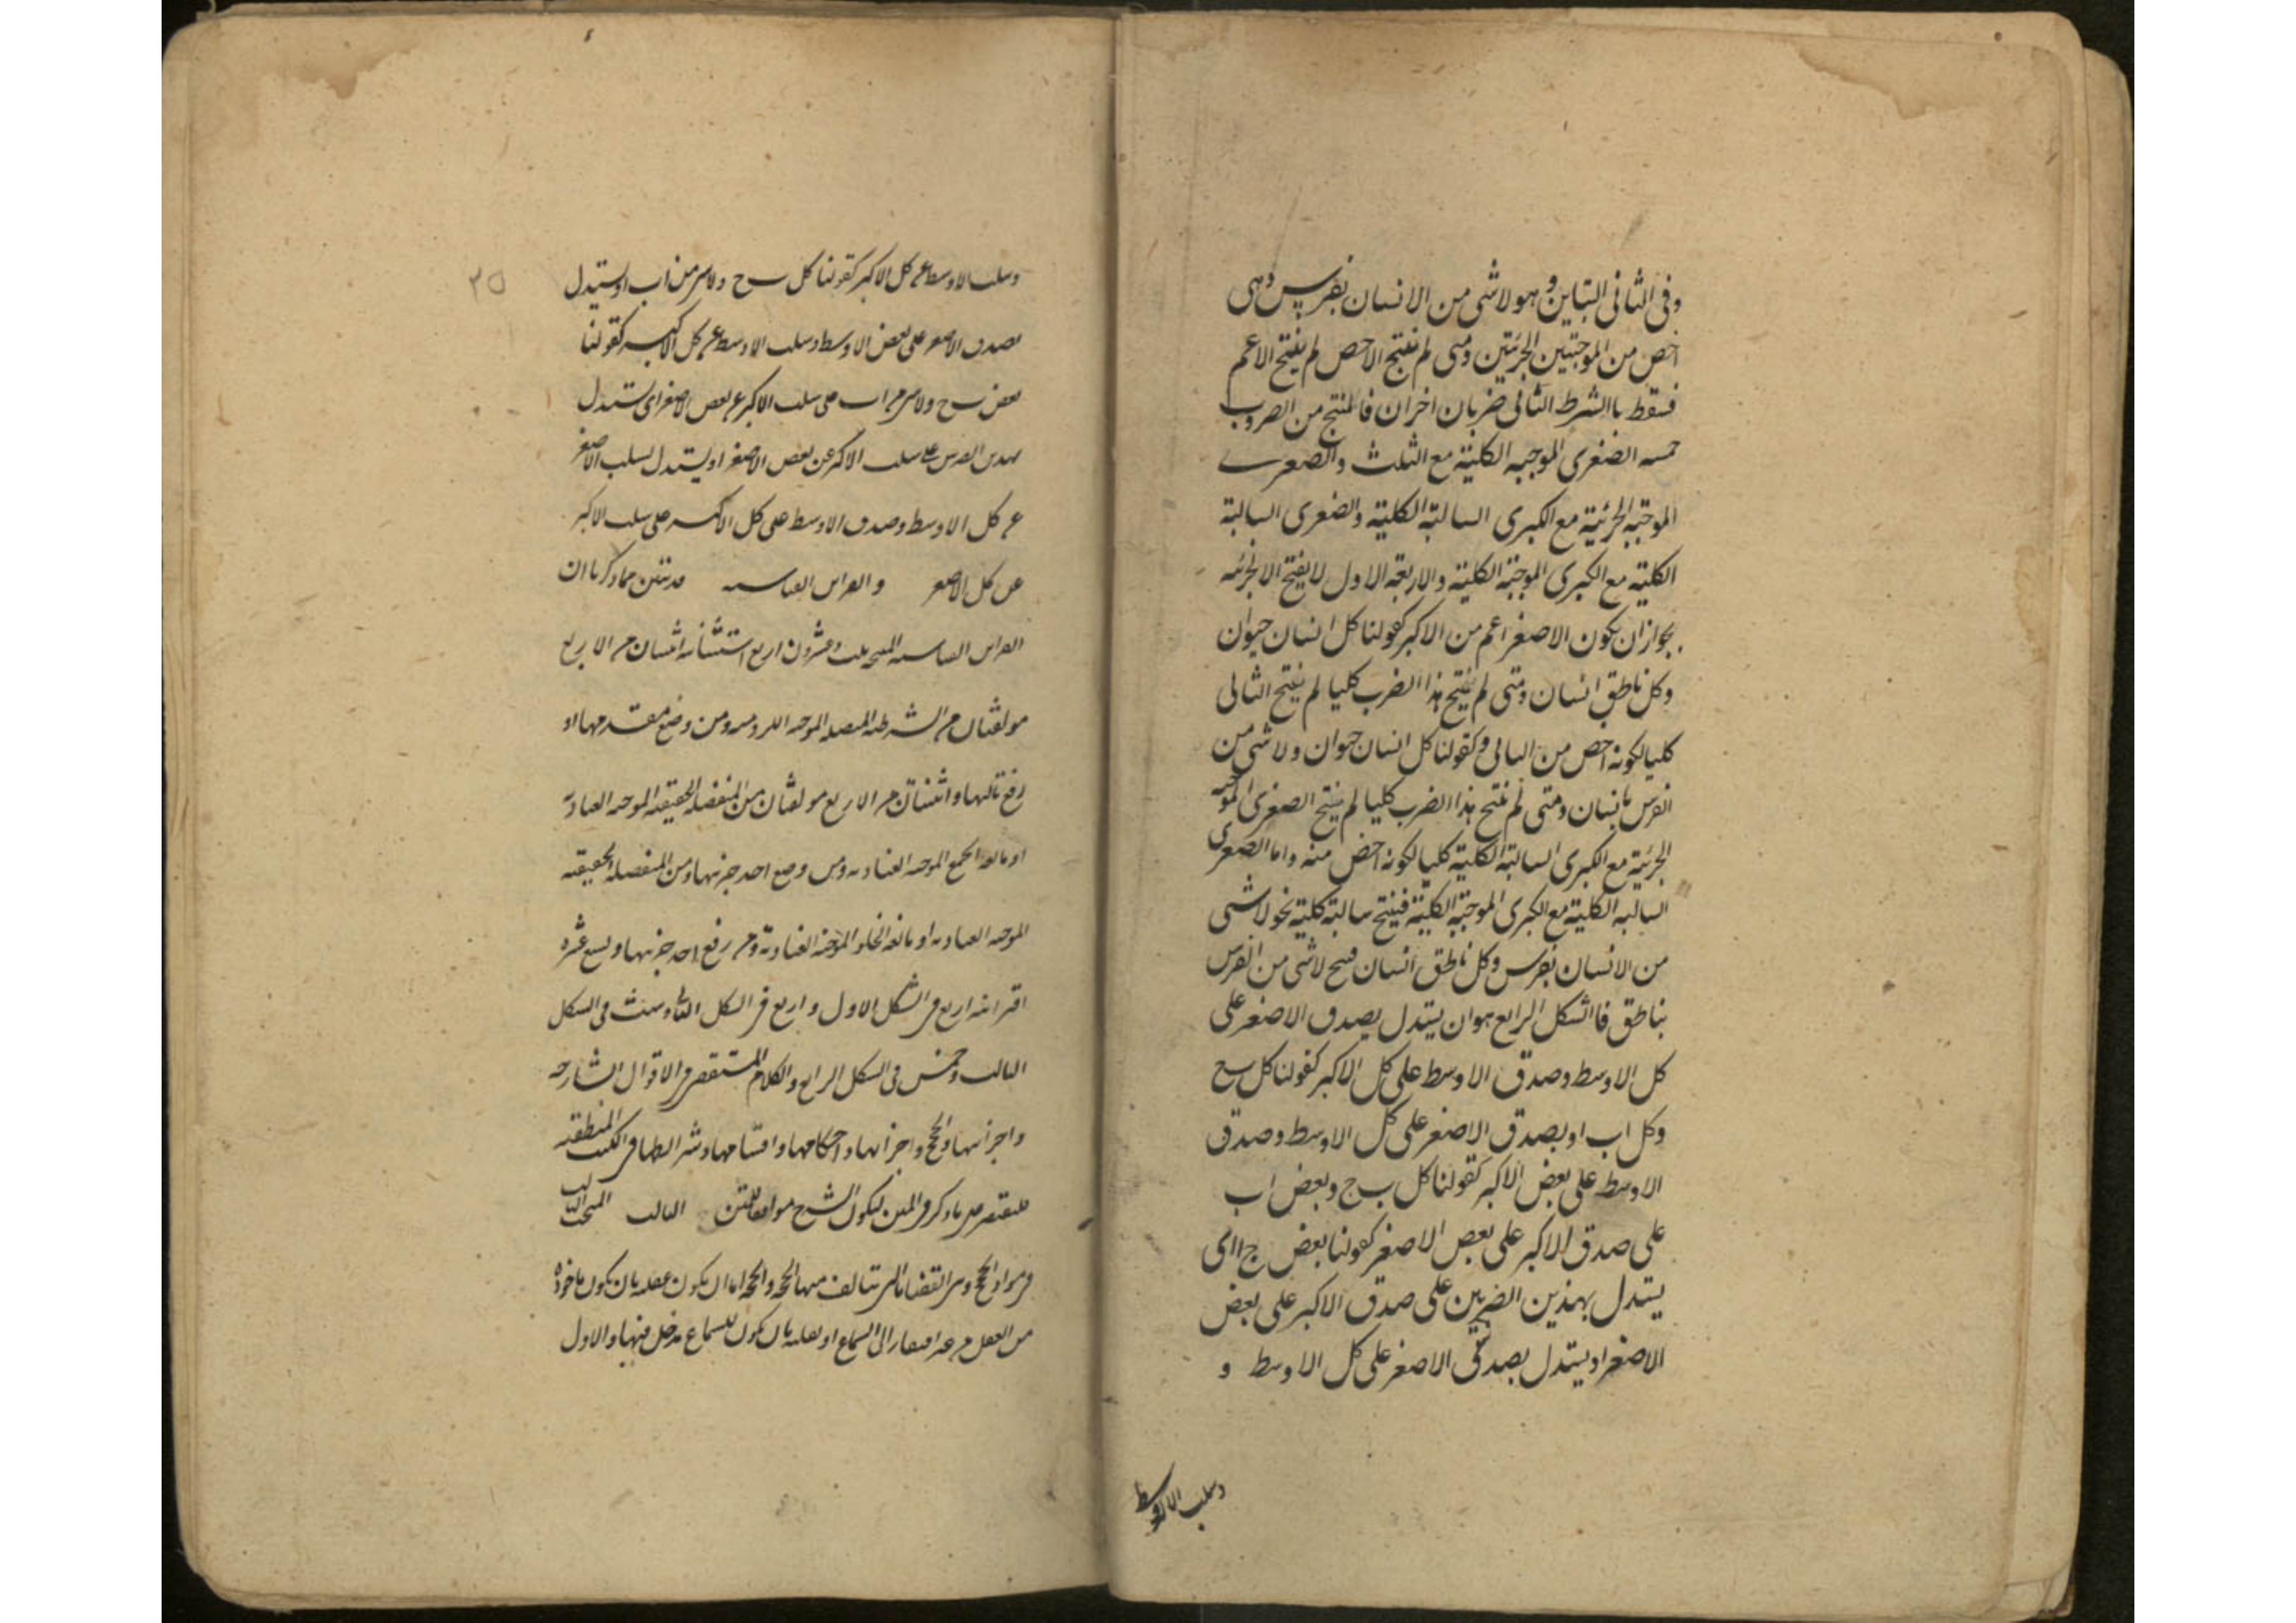 وفى الثانى التباين وهو لاشى من الانسان بفرس وهى
اخص من الموجبتين الجزئيتين ومتى لم ينتج الاخص لم ينتج الاعم
فسقط باالشرط الثانى ضربان اخران فالمنتج من الضروب
خمسه الصغرى الموجبه الكلية مع الثلث والصغرى
الموجبة الجزئية مع الكبرى السالبة الكلية والصغرى السالبة
الكلية مع الكبرى الموجبة الكلية والاربعة الاول لا ينتج الا جزئيه
بجواز ان يكون الاصغر اعم من الاكبر كقولنا كل انسان حيوان
وكل ناطق انسان ومتى لم ينتج هذا الضرب كليا لم ينتج الثانى
كليا لكونه اخص من الثانى وكقولنا كل انسان حيوان ولا شى من
الفرس بانسان ومتى لم ينتج هذا الضرب كليا لم ينتج الصغرى الموجبه
الجزئية مع الكبرى السالبة الكلية كليا لكونه اخص منه واما الصغرى
السالبه الكلية مع الكبرى الموجبة الكلية فينتج سالبة كلية نحو لا شى
من الانسان بفرس وكل ناطق انسان ينتج لاشى من الفرس
بناطق فاالشكل الرابع هو ان يستدل بصدق الاصغر على
كل الاوسط وصدق الاوسط على كل الاكبر كقولنا كل ب ج
وكل ا ب او بصدق الاصغر على كل الاوسط وصدق
الاوسط على بعض الاكبر كقولنا كل ب ج وبعض ا ب
على صدق الاكبر على بعض الاصغر كقولنا بعض ج ا اى
يستدل بهذين الضربين على صدق الاكبر على بعض
الاصغر او يستدل بصدق الاصغر على كل الاوسط و
وسلب الاوسط
٣٥
وسلب الاوسط عن كل الاكبر كقولنا كل ب ج ولا شى من ا ب او يستدل
بصدق الاصغر على بعض الاوسط وسلب الاوسط عن كل الاكبر كقولنا
بعض ب ج ولا شى من ا ب على سلب الاكبر عن بعض الاصغر اى يستدل
بهذين الضربين على سلب الاكبر عن بعض الاصغر او يستدل بسلب الاصغر
عن كل الاوسط وصدق الاوسط على كل الاكبر على سلب الاكبر
عن كل الاصغر والقراين القياسيه قد تبين مما ذكرنا ان
القراين القياسيه المنتجه ثلث وعشرون اربع استثنائيه اثنتان من الاربع
مولفتان من الشرطيه المتصله الموجبه اللزوميه ومن وضع مقدمها او
رفع تاليها واثنتان من الاربع مولفتان من المنفصله الحقيقيه الموجبه العناديه
او مانعه الجمع الموجبه العناديه ومن وضع احد جزئيها ومن المنفصله الحقيقيه
الموجبه العناديه او مانعه الخلو الموجبه العنادية ومن رفع احد جزئيها وتسع عشره
اقترانيه اربع فى الشكل الاول واربع فى الشكل الثانى وست فى الشكل
الثالث وخمس فى الشكل الرابع والكلام المستقصى فى الاقوال الشارحه
واجزائها والحجج واجزائها واحكامها واقسامها وشرائطها فى الكتب المنطقيه
فلنقتصر على ما ذكر فى المتن ليكون الشرح موافقا للمتن المبحث الثالث
فى مواد الحجج وهى القضايا التى تتالف منها الحجه والحجه اما ان يكون عقليه بان يكون ماخوذه
من العقل من غير افتقار الى السماع او نقليه بان يكون للسماع مدخل فيها والاول